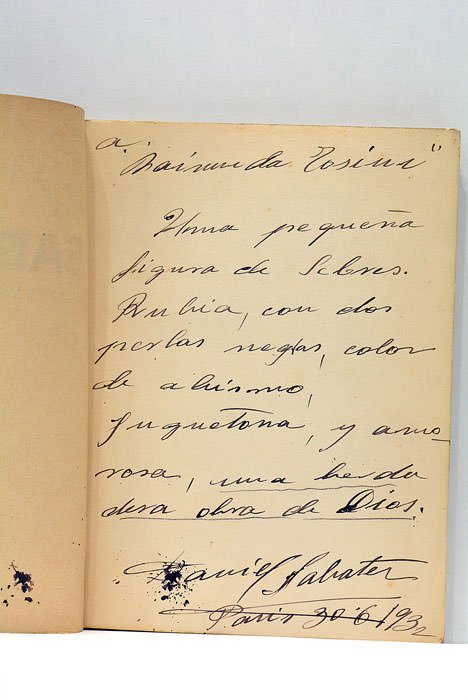 a.
"Raimunda Tosini"
Una pequeña
figura de Sebres.
Rubia, con dos
perlas negras, color
de abismo,
Juguetona, y amo-
rosa, una berda
dera obra de Dios.
Daniel Sabater
Paris 30-6-1932